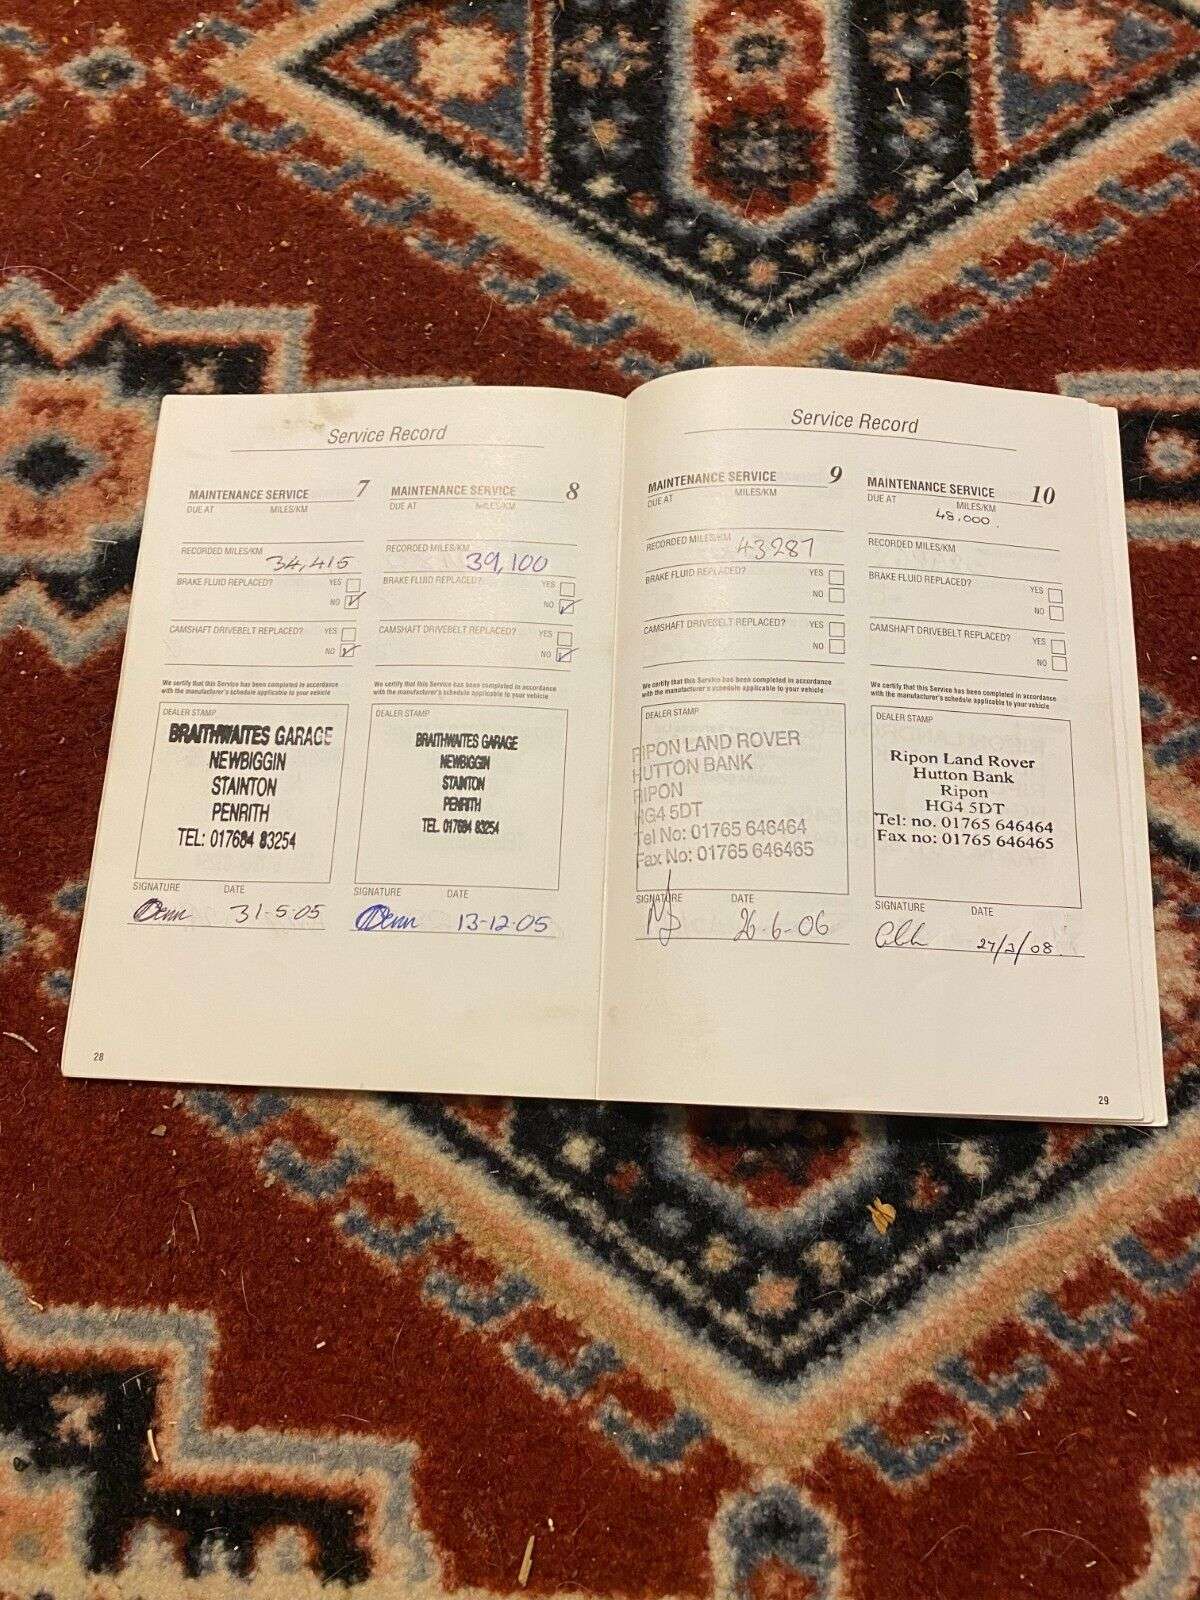 Service Record
MAINTENANCE SERVICE 7
DUE AT MILES/KM
RECORDED MILES/KM 34,415
BRAKE FLUID REPLACED? YES
NO
CAMSHAFT DRIVEBELT REPLACED? YES
NO
We certify that this Service has been completed in accordance
with the manufacturer's schedule applicable to your vehicle
DEALER STAMP
BRAITHWAITES GARAGE
NEWBIGGIN
STAINTON
PENRITH
TEL: 017684 83254
SIGNATURE DATE
31-5-05
MAINTENANCE SERVICE 8
DUE AT MILES/KM
RECORDED MILES/KM 39,100
BRAKE FLUID REPLACED? YES
NO
CAMSHAFT DRIVEBELT REPLACED? YES
NO
We certify that this Service has been completed in accordance
with the manufacturer's schedule applicable to your vehicle
DEALER STAMP
BRAITHWAITES GARAGE
NEWBIGGIN
STAINTON
PENRITH
TEL. 017684 83254
SIGNATURE DATE
13-12-05
28
Service Record
MAINTENANCE SERVICE 9
DUE AT MILES/KM
RECORDED MILES/KM 43287
BRAKE FLUID REPLACED? YES
NO
CAMSHAFT DRIVEBELT REPLACED? YES
NO
We certify that this Service has been completed in accordance
with the manufacturer's schedule applicable to your vehicle
DEALER STAMP
RIPON LAND ROVER
HUTTON BANK
RIPON
HG4 5DT
Tel No: 01765 646464
Fax No: 01765 646465
SIGNATURE DATE
26-6-06
MAINTENANCE SERVICE 10
DUE AT MILES/KM
48.000.
RECORDED MILES/KM
BRAKE FLUID REPLACED? YES
NO
CAMSHAFT DRIVEBELT REPLACED? YES
NO
We certify that this Service has been completed in accordance
with the manufacturer's schedule applicable to your vehicle
DEALER STAMP
Ripon Land Rover
Hutton Bank
Ripon
HG4 5DT
Tel: no. 01765 646464
Fax no: 01765 646465
SIGNATURE DATE
27/2/08
29